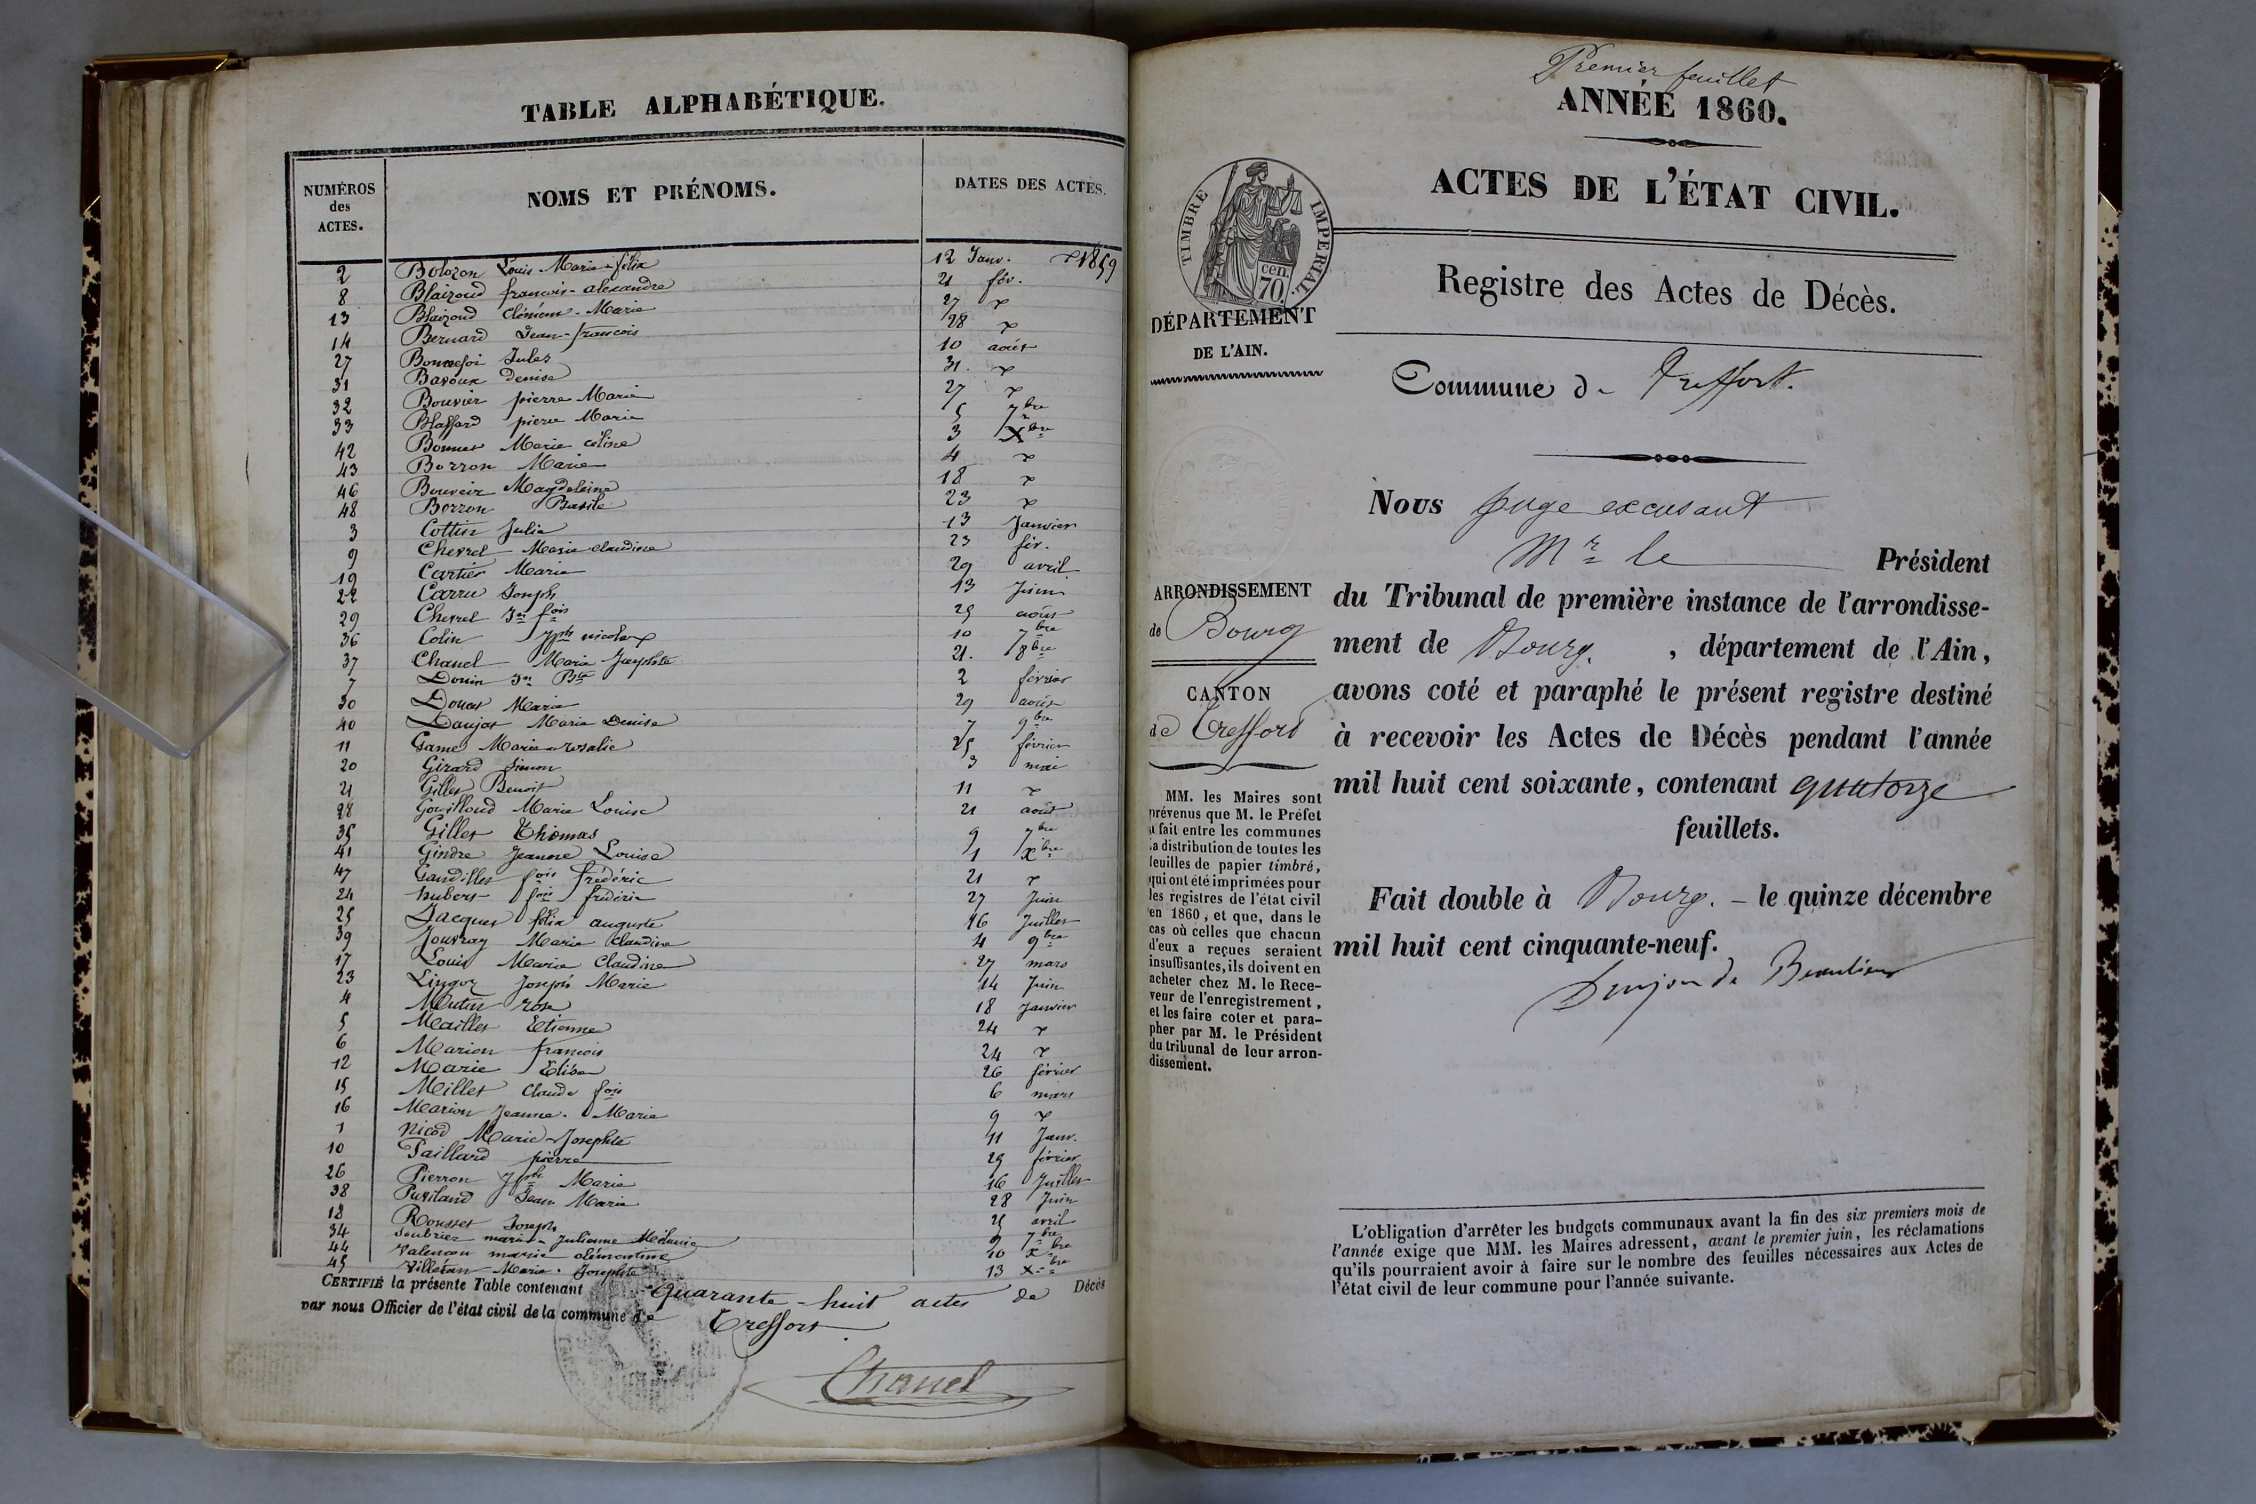 TABLE ALPHABÉTIQUE.
NUMÉROS des ACTES. NOMS ET PRÉNOMS. DATES DES ACTES.
2 Bolozon Louis Marie félix 12 Janv. 1859
8 Blaizoud francois-alexandre 21 fév.
13 Blaizoud Clément-Marie 27 "
14 Bernard Jean-francois 28 "
27 Bonnefoi Jules 10 août
31 Bavoux denise 31. "
32 Bouvier pierre Marie 27 "
33 Blaffard pierre Marie 5 7bre
42 Bonnet Marie céline 3 Xbre
43 Borron Marie 4 "
46 Bouveir Magdeleine 18 "
48 Borron Basile 23 "
3 Cottin Julie 13 Janvier
9 Chevrel Marie claudine 23 fév.
19 Cartier Marie 29 avril
22 Carru Joseph 13 Juin
29 Chevrel Jn fois 25 août
36 Colin Jph nicolas 10 7bre
37 Chanel Marie Josephte 21. 8bre
7 Douin Jn Bte 2 février
30 Douat Marie 29 août
40 Daujat Marie Denise 7 9bre
11 Game Marie-rosalie 25 février
20 Girard simon 3 mai
21 Gilles Benoit 11 "
28 Gouilloud Marie Louise 21 août
35 Gilles Thomas 9 7bre
41 Gindre Jeanne Louise 1 Xbre
47 Gandilles fois frédéric 21 "
24 hubert fois frédéric 27 Juin
25 Jacques félix auguste 16 Juillet
39 Jouvray Marie Claudine 4 9bre
17 Louis Marie Claudine 27 mars
23 Lingoz Joseph Marie 14 Juin
4 Mutin rose 18 Janvier
5 Mailles Etienne 24 "
6 Marion francois 24 "
12 Marie Elisa 26 février
15 Millet Claude fois 6 mars
16 Marion Jeanne-Marie 9 "
1 Nicod Marie-Josephte 11 Janv.
10 Paillard pierre 29 février
26 Pierron Jph Marie 16 Juillet
38 Puviland Jean Marie 28 Juin
18 Rousset Joseph 25 avril
34 Soubrier marie-Julienne Mélanie 9 7bre
44 Valencon marie clémentine 10 Xbre
45 Villeran Marie-Josephte 13 Xbre
CERTIFIÉ la présente Table contenant Quarante-huit actes de Décès
par nous Officier de l'état civil de la commune de Treffort.
Chanel
Premier feuillet
ANNÉE 1860.
ACTES DE L'ÉTAT CIVIL.
TIMBRE IMPERIAL
cen. 70.
DÉPARTEMENT
DE L'AIN.
Registre des Actes de Décès.
Commune de Treffort.
Nous Juge excusant
Mr le Président
du Tribunal de première instance de l'arrondisse-
ment de Bourg. , département de l'Ain,
avons coté et paraphé le présent registre destiné
à recevoir les Actes de Décès pendant l'année
mil huit cent soixante, contenant quatorze
feuillets.
Fait double à Bourg. - le quinze décembre
mil huit cent cinquante-neuf.
ARRONDISSEMENT
de Bourg
CANTON
de Treffort
MM. les Maires sont
prévenus que M. le Préfet
a fait entre les communes
la distribution de toutes les
feuilles de papier timbré,
qui ont été imprimées pour
les registres de l'état civil
en 1860, et que, dans le
cas où celles que chacun
d'eux a reçues seraient
insuffisantes, ils doivent en
acheter chez M. le Rece-
veur de l'enregistrement,
et les faire coter et para-
pher par M. le Président
du tribunal de leur arron-
dissement.
L'obligation d'arrêter les budgets communaux avant la fin des six premiers mois de
l'année exige que MM. les Maires adressent, avant le premier juin, les réclamations
qu'ils pourraient avoir à faire sur le nombre des feuilles nécessaires aux Actes de
l'état civil de leur commune pour l'année suivante.